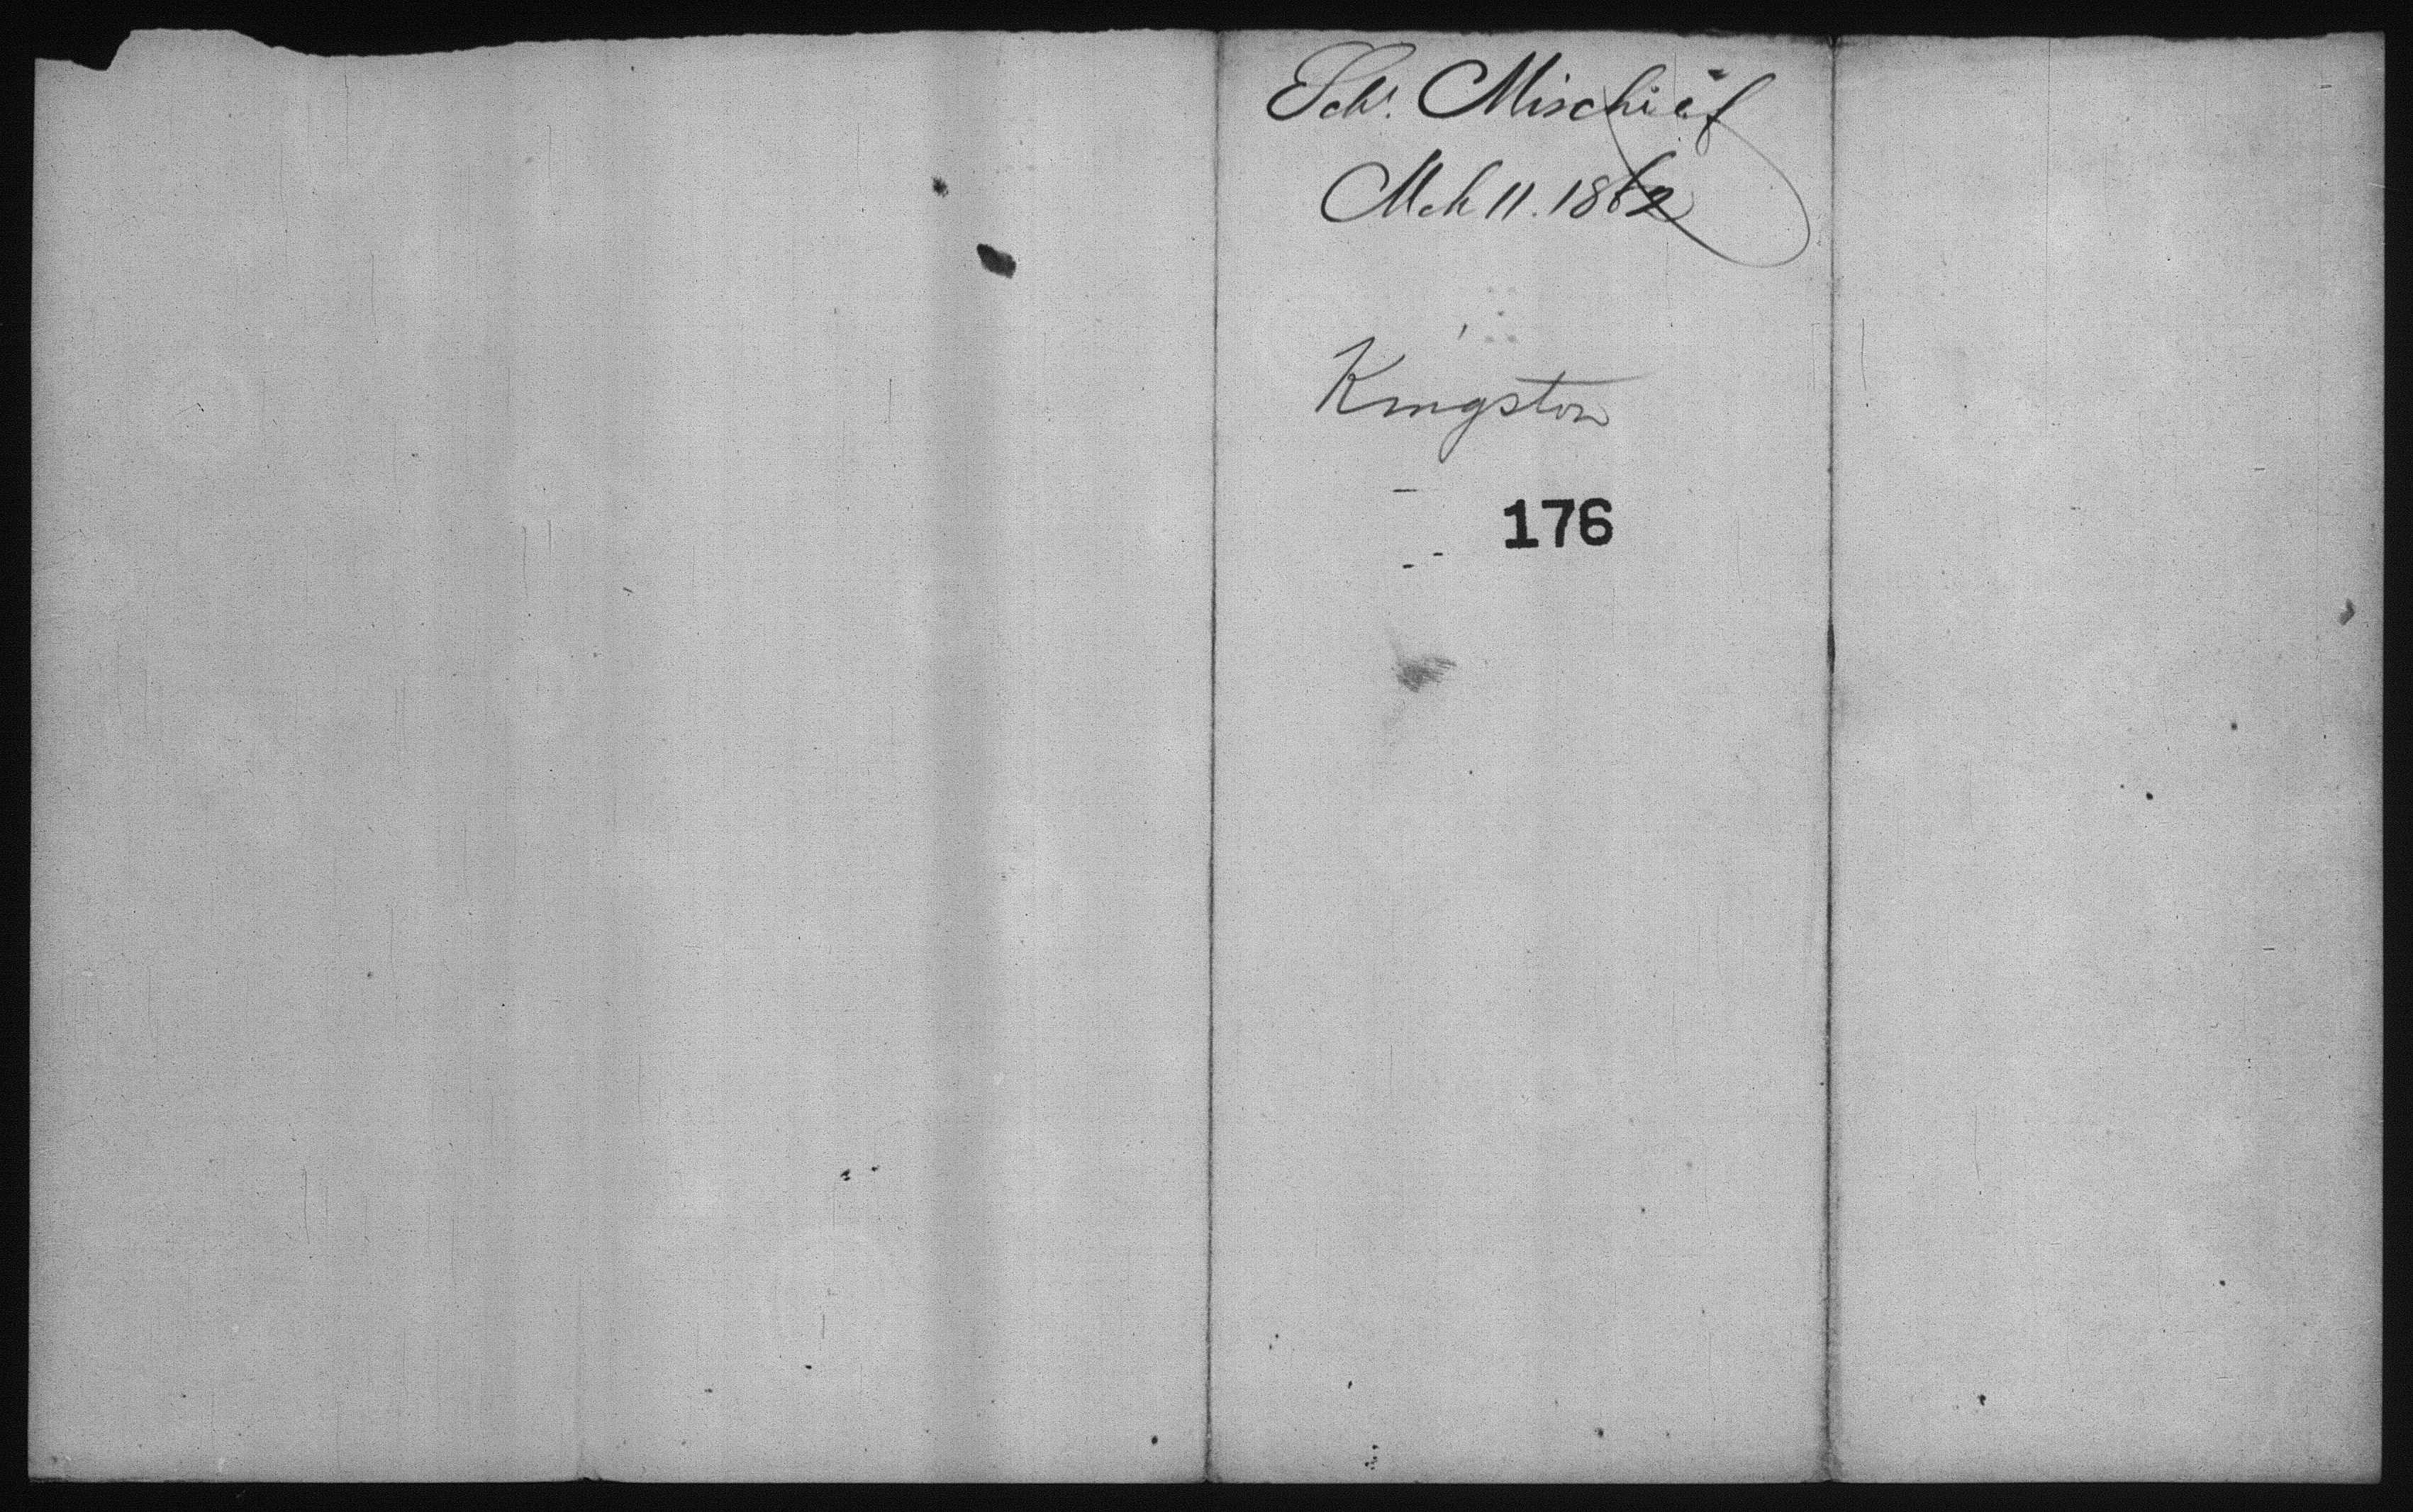 Schr. Mischief
Mch 11. 1862
Kingston
176